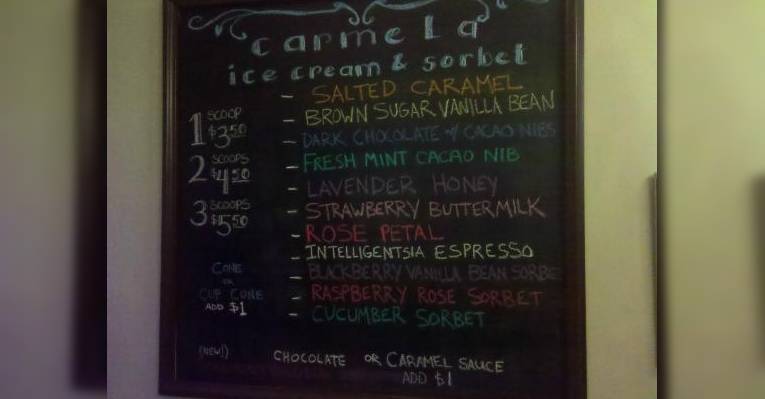 carmela
ice cream & sorbet
- SALTED CARAMEL
- BROWN SUGAR VANILLA BEAN
- DARK CHOCOLATE w/ CACAO NIBS
- FRESH MINT CACAO NIB
- LAVENDER HONEY
- STRAWBERRY BUTTERMILK
- ROSE PETAL
- INTELLIGENTSIA ESPRESSO
- BLACKBERRY VANILLA BEAN SORBE
- RASPBERRY ROSE SORBET
- CUCUMBER SORBET
1 SCOOP
$3.50
2 SCOOPS
$4.50
3 SCOOPS
$5.50
CONE
OR
CUP CONE
ADD $1
(NEW!) CHOCOLATE OR CARAMEL SAUCE
ADD $1